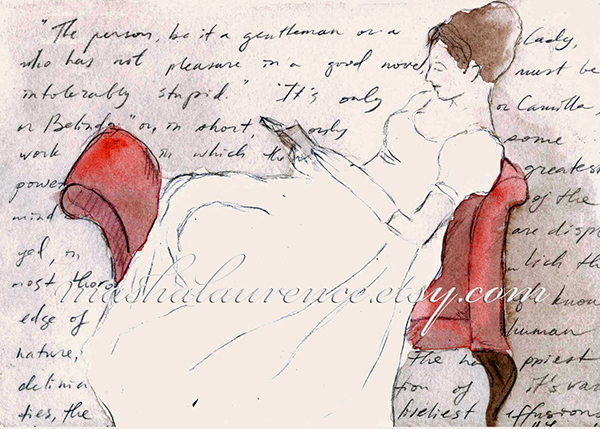 "The person, be it a gentleman or a Lady,
who has not pleasure in a good novel, must be
intolerably stupid." "It's only or Camilla,
or Belinda" or, in short, only some
work in which the greatest
powers of the
mind are disp
yed, in which the
most thoro
mashalaurence.etsy.com
edge of of know
nature, human
the ha ppiest
delinia tion of it's var
ties, the liveliest effusions